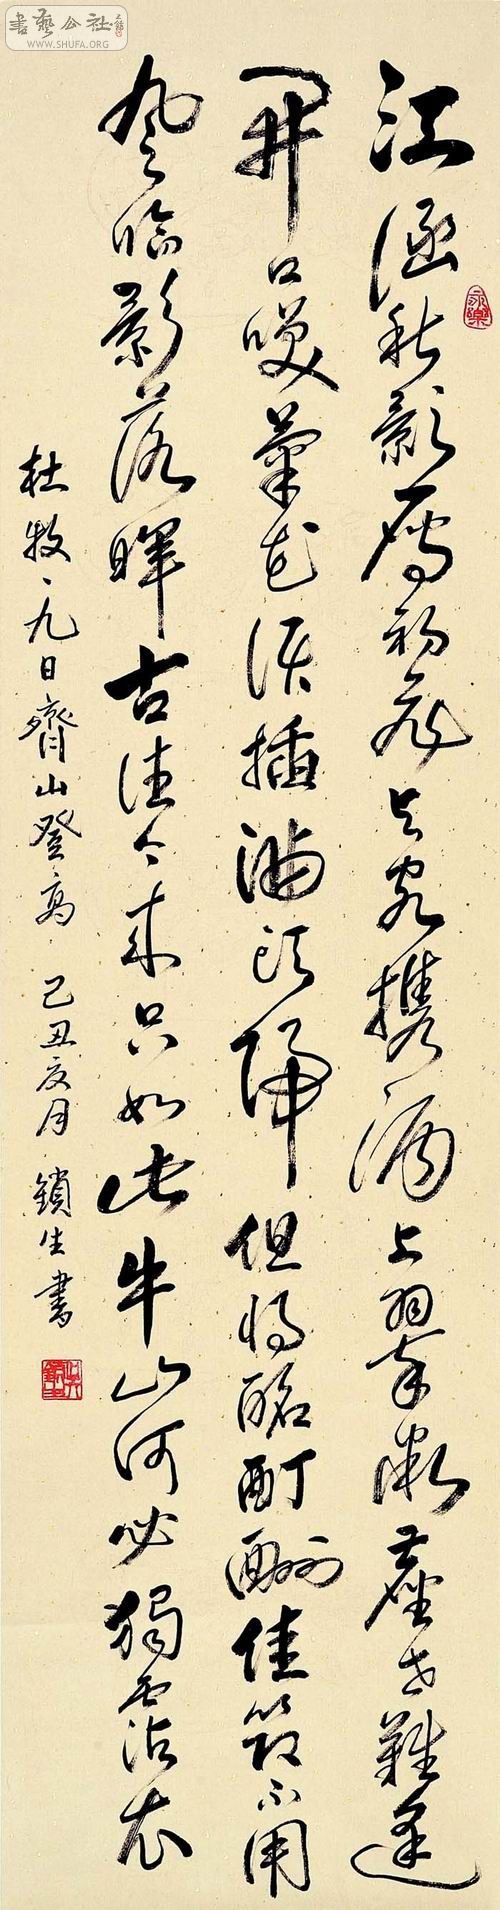 書藝公社
WWW.SHUFA.ORG
江涵秋影雁初飛與客攜酒上翠微塵世難逢
開口咲菊花須插滿頭歸但將酩酊酬佳節不用
登臨影落暉古往今來只如此牛山何必獨霑衣
杜牧、九日齊山登高 己丑夏月 鎖生書
永樂